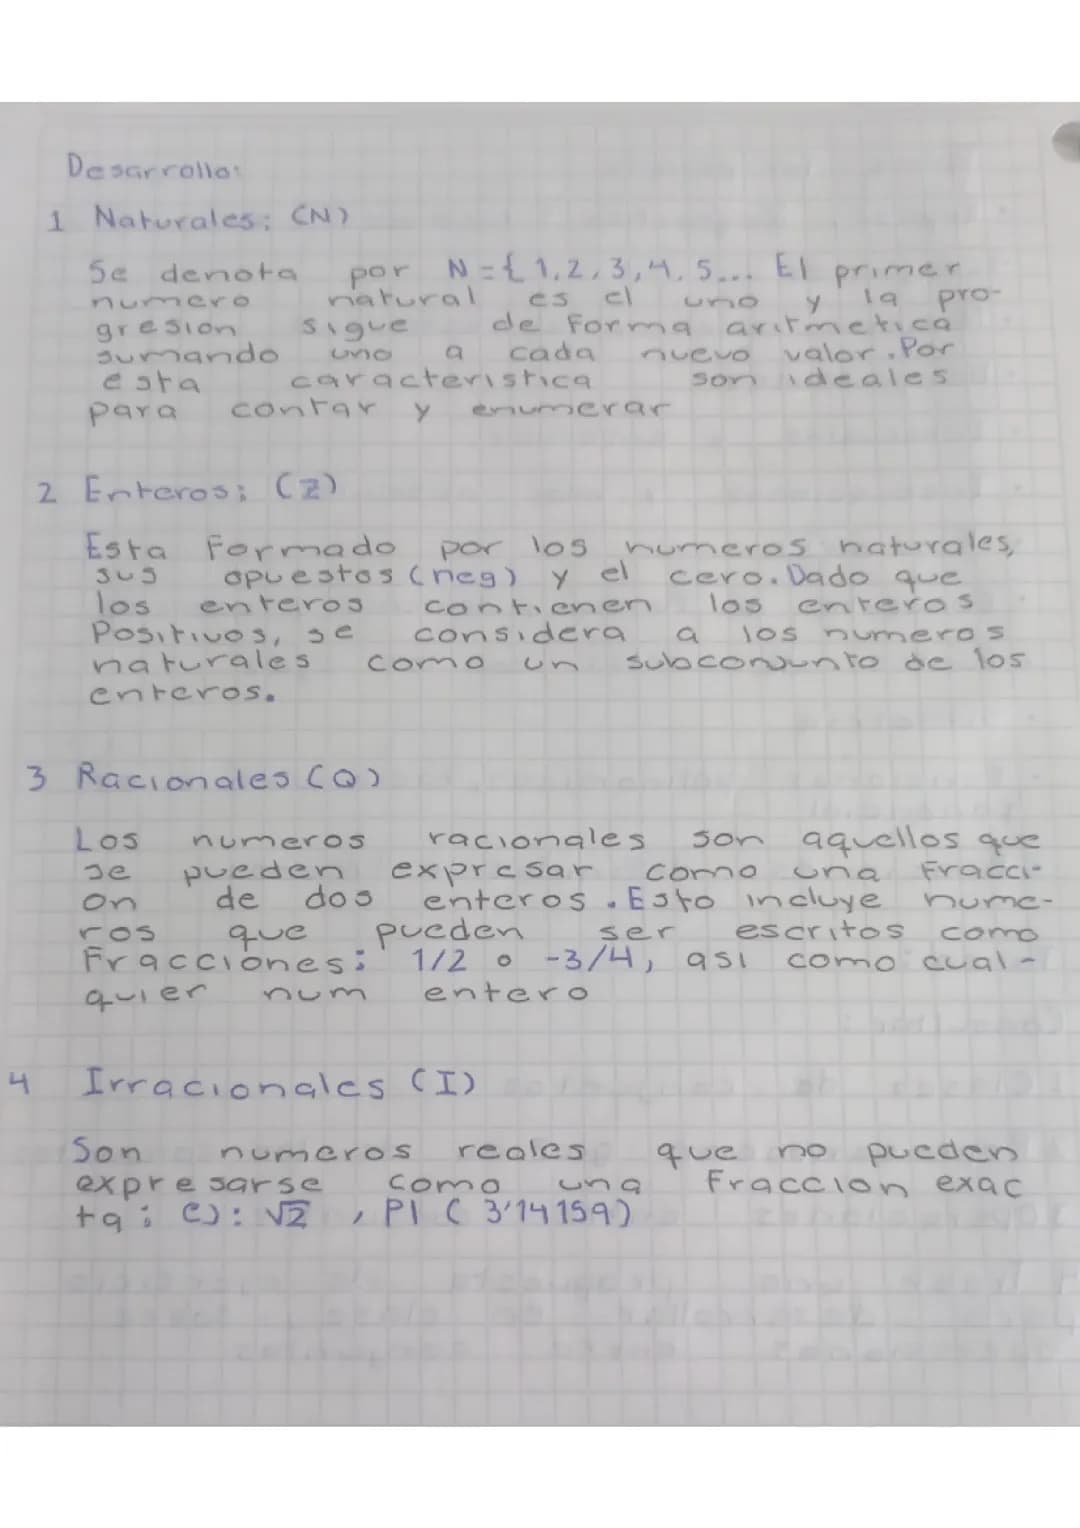 Desarrollo:
1 Naturales: (N)
Se denota por N={1,2,3,4,5... El primer
numero natural es el uno y la pro-
gresion sigue de forma aritmetica
sumando uno a cada nuevo valor. Por
esta caracteristica son ideales
para contar y enumerar
2 Enteros: (Z)
Esta formado por los numeros naturales,
sus opuestos (neg) y el cero. Dado que
los enteros contienen los enteros
Positivos, se considera a los numeros
naturales como un subconjunto de los
enteros.
3 Racionales (Q)
Los numeros racionales son aquellos que
se pueden expresar como una Fracci-
on de dos enteros. Esto incluye nume-
ros que pueden ser escritos como
Fracciones: 1/2 o -3/4, asi como cual-
quier num entero
4 Irracionales (I)
Son numeros reales que no pueden
expresarse como una Fraccion exac
ta: ej: √2 , PI (3'14159)